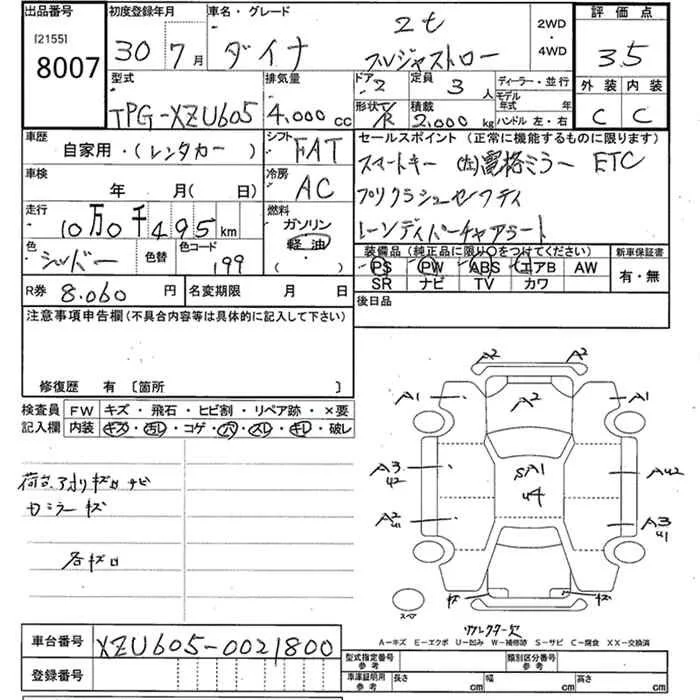 出品番号
[2155]
8007
初度登録年月
30 7月
車名・グレード
2t
ダイナ フルジャストロー
2WD
・
4WD
評価点
3.5
外装 内装
C C
型式
TPG-XZU605
排気量
4,000 cc
ドア 2
定員 3人
ディーラー・並行
モデル年式 年
形状 T/R
積載 2,000 kg
ハンドル 左・右
車歴
自家用・(レンタカー)
シフト FAT
車検
年 月(日)
冷房 AC
走行
10万0千495km
燃料
ガソリン
軽油
( ・ )
色
シルバー
色替
色コード
199
セールスポイント (正常に機能するものに限ります)
スマートキー (左)電格ミラー ETC
プリクラシュセーフティ
レーンディパーチャアラート
装備品 (純正品に限り○をつけてください)
PS PW ABS エアB AW
SR ナビ TV カワ
新車保証書
有・無
R券 8.060 円
名変期限 月 日
後日品
注意事項申告欄(不具合内容等は具体的に記入して下さい)
修復歴 有 〔箇所 〕
検査員 FW キズ・飛石・ヒビ割・リペア跡・×要
記入欄 内装 キズ・汚レ・コゲ・穴・スレ・キレ・破レ
荷台アオリキズ サビ
カミラーキズ
各キズ
A2 A2
A1 A2 A1
A3
U2
SA1
U4
AU2
A2
U1
A3
U1
キズ キズ
スペア
リフレクター欠
A-キズ E-エクボ U-凹み W-補修跡 S-サビ C-腐食 XX-交換済
車台番号 XZU605-0021800
登録番号
型式指定番号
参考
類別区分番号
参考
車庫証明用
参考
長さ cm
幅 cm
高さ cm